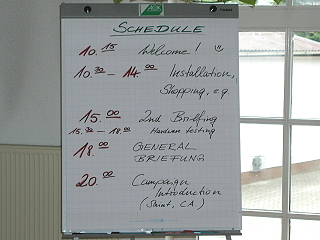 SCHEDULE
10.15 Welcome! ☺
10.30 - 14.00 Installation,
Shopping, e.g.
15.00 2nd Briefing
15.30 - 18.00 Hardware testing
18.00 GENERAL
BRIEFUNG
20.00 Campaign
Introduction
(Saint, CA)